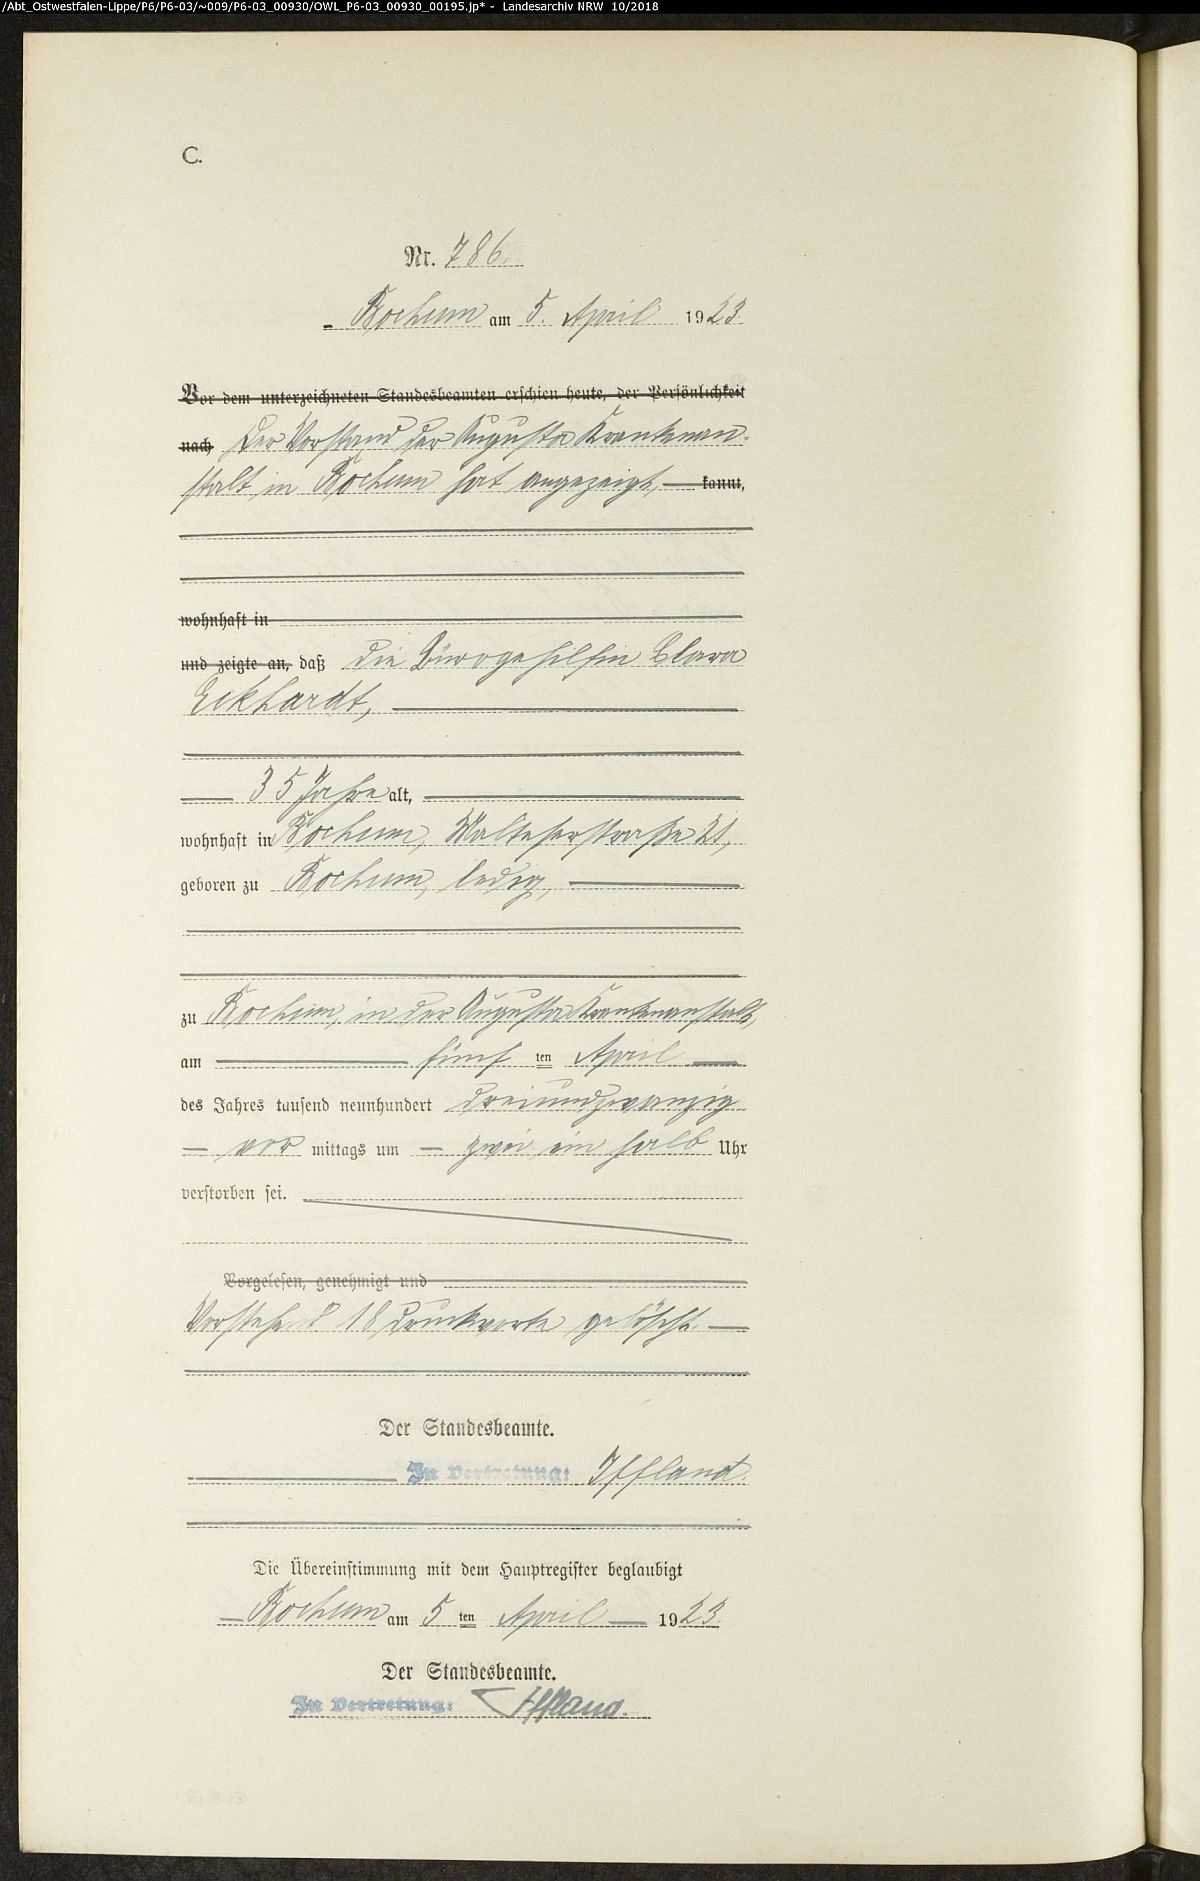 /Abt_Ostwestfalen-Lippe/P6/P6-03/~009/P6-03_00930/OWL_P6-03_00930_00195.jp* - Landesarchiv NRW 10/2018
C.
Nr. 786.
Bochum am 5. April 1923.
Vor dem unterzeichneten Standesbeamten erschien heute, der Persönlichkeit
nach Der Vorstand der Augusta Krankenan-
stalt in Bochum hat angezeigt, kannt,
wohnhaft in
und zeigte an, daß die Bürogehilfin Clara
Eckhardt,
35 Jahre alt,
wohnhaft in Bochum, Malteserstraße 21,
geboren zu Bochum, ledig,
zu Bochum, in der Augusta Krankenanstalt,
am fünf ten April
des Jahres tausend neunhundert dreiundzwanzig
vor mittags um zwei ein halb Uhr
verstorben sei.
Vorgelesen, genehmigt und
Vorstehend 18 Druckworte gelöscht.
Der Standesbeamte.
In Vertretung: Iffland.
Die Übereinstimmung mit dem Hauptregister beglaubigt
Bochum am 5 ten April 1923.
Der Standesbeamte.
In Vertretung: Iffland.